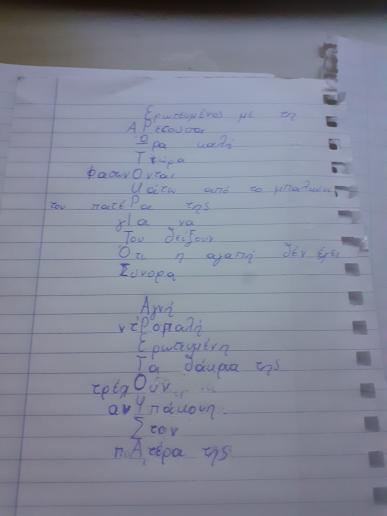 Ερωτευμένος με τη
ΑΡετούσα
Ώρα καλή
Τώρα
ΦασκιΟνται
Κάτω από το μπαλκόνι
του πατέΡα της
γΙα να
Του δείξουν
Ότι η αγαπή δεν έχει
Σύνορα
Αγνή
ντΡοπαλή
Ερωτευμένη
Τα δάκρια της
τρέχΟύν
ανΥπάκουη
Στον
πΑτέρα της